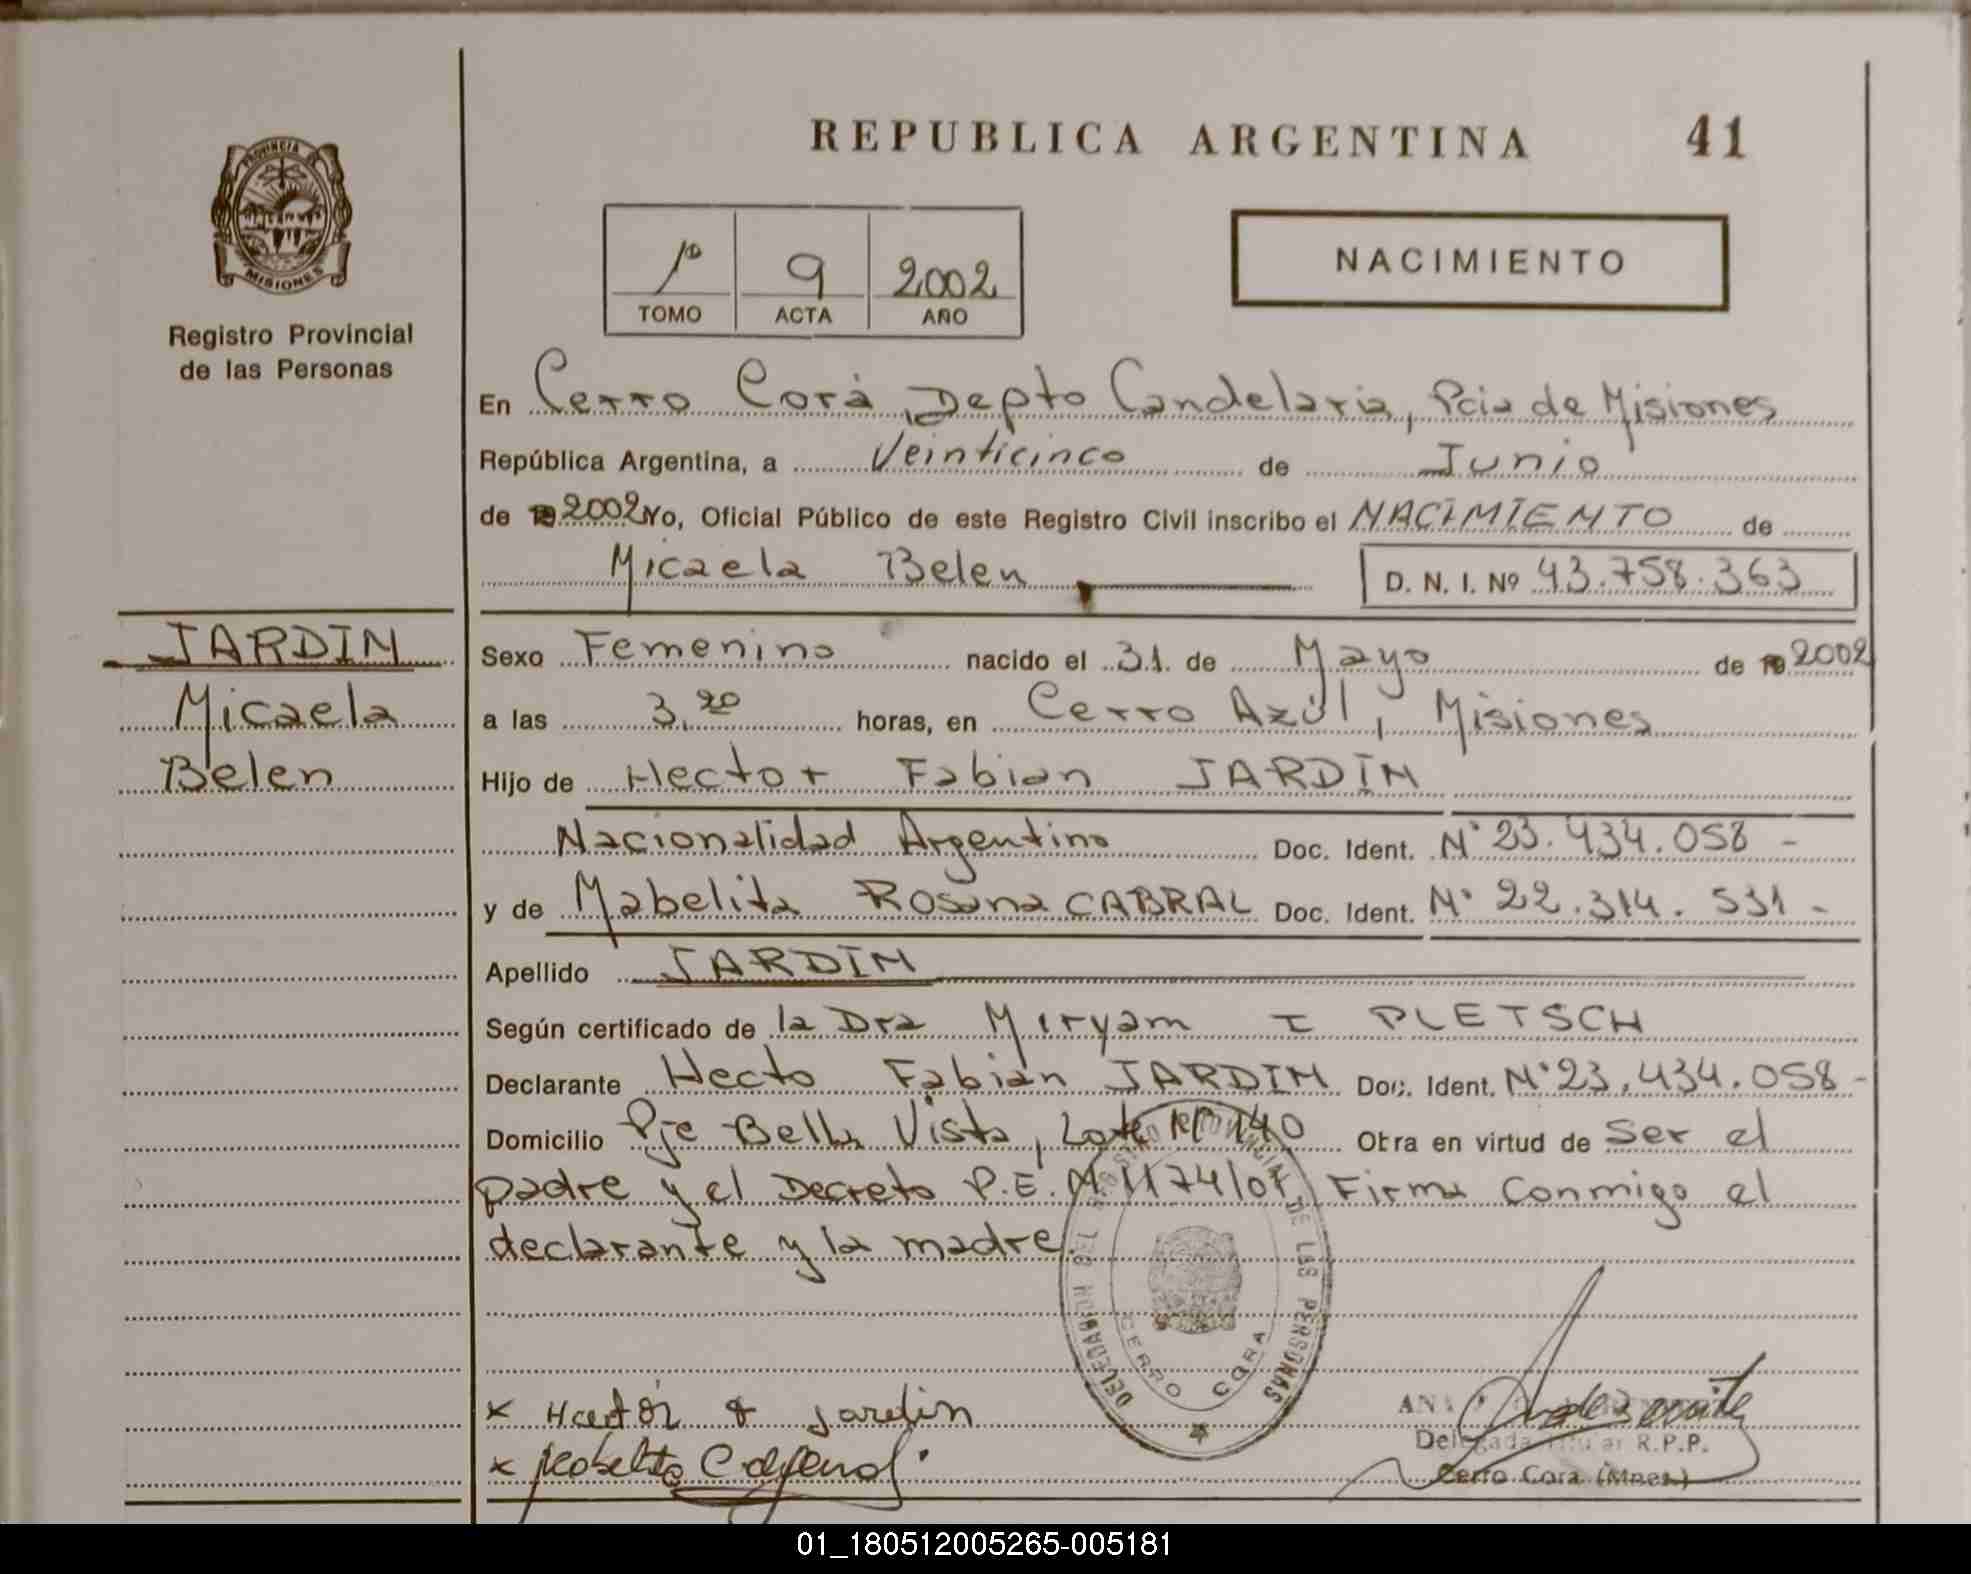 REPUBLICA ARGENTINA 41
PROVINCIA DE
MISIONES
Registro Provincial
de las Personas
1º 9 2002
TOMO ACTA AÑO
NACIMIENTO
En Cerro Corá, Depto Candelaria, Pcia de Misiones
República Argentina, a Veinticinco de Junio
de 19 2002 Yo, Oficial Público de este Registro Civil inscribo el NACIMIENTO de
Micaela Belen D. N. I. Nº 43.758.363
JARDIN
Micaela
Belen
Sexo Femenino nacido el 31 de Mayo de 19 2002
a las 3,20 horas, en Cerro Azúl, Misiones
Hijo de Hector Fabian JARDIN
Nacionalidad Argentino Doc. Ident. Nº 23.434.058 -
y de Mabelita Rosana CABRAL Doc. Ident. Nº 22.314.531 -
Apellido JARDIN
Según certificado de la Dra Miryam I PLETSCH
Declarante Hecto Fabián JARDIN Doc. Ident. Nº 23.434.058 -
Domicilio Pje Bella Vista, Lote Nº 140 Obra en virtud de Ser el
padre y el Decreto P.E. Nº 1174/07 Firma Conmigo el
declarante y la madre.
DELEGACION DEL REGISTRO PROVINCIAL DE LAS PERSONAS
CERRO CORA
x Hector F Jardin
x Mabelita
ANA
Delegada Titular R.P.P.
Cerro Cora (Mnes.)
01_180512005265-005181